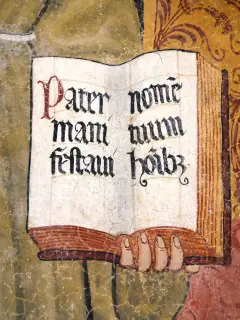 Pater
mani
festaui
nomē
tuum
hōibꝫ